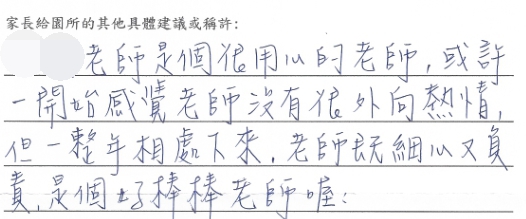 家長給園所的其他具體建議或稱許:
老師是個很用心的老師,或許
一開始感覺老師沒有很外向熱情,
但一整年相處下來,老師既細心又負
責,是個好棒棒老師喔: